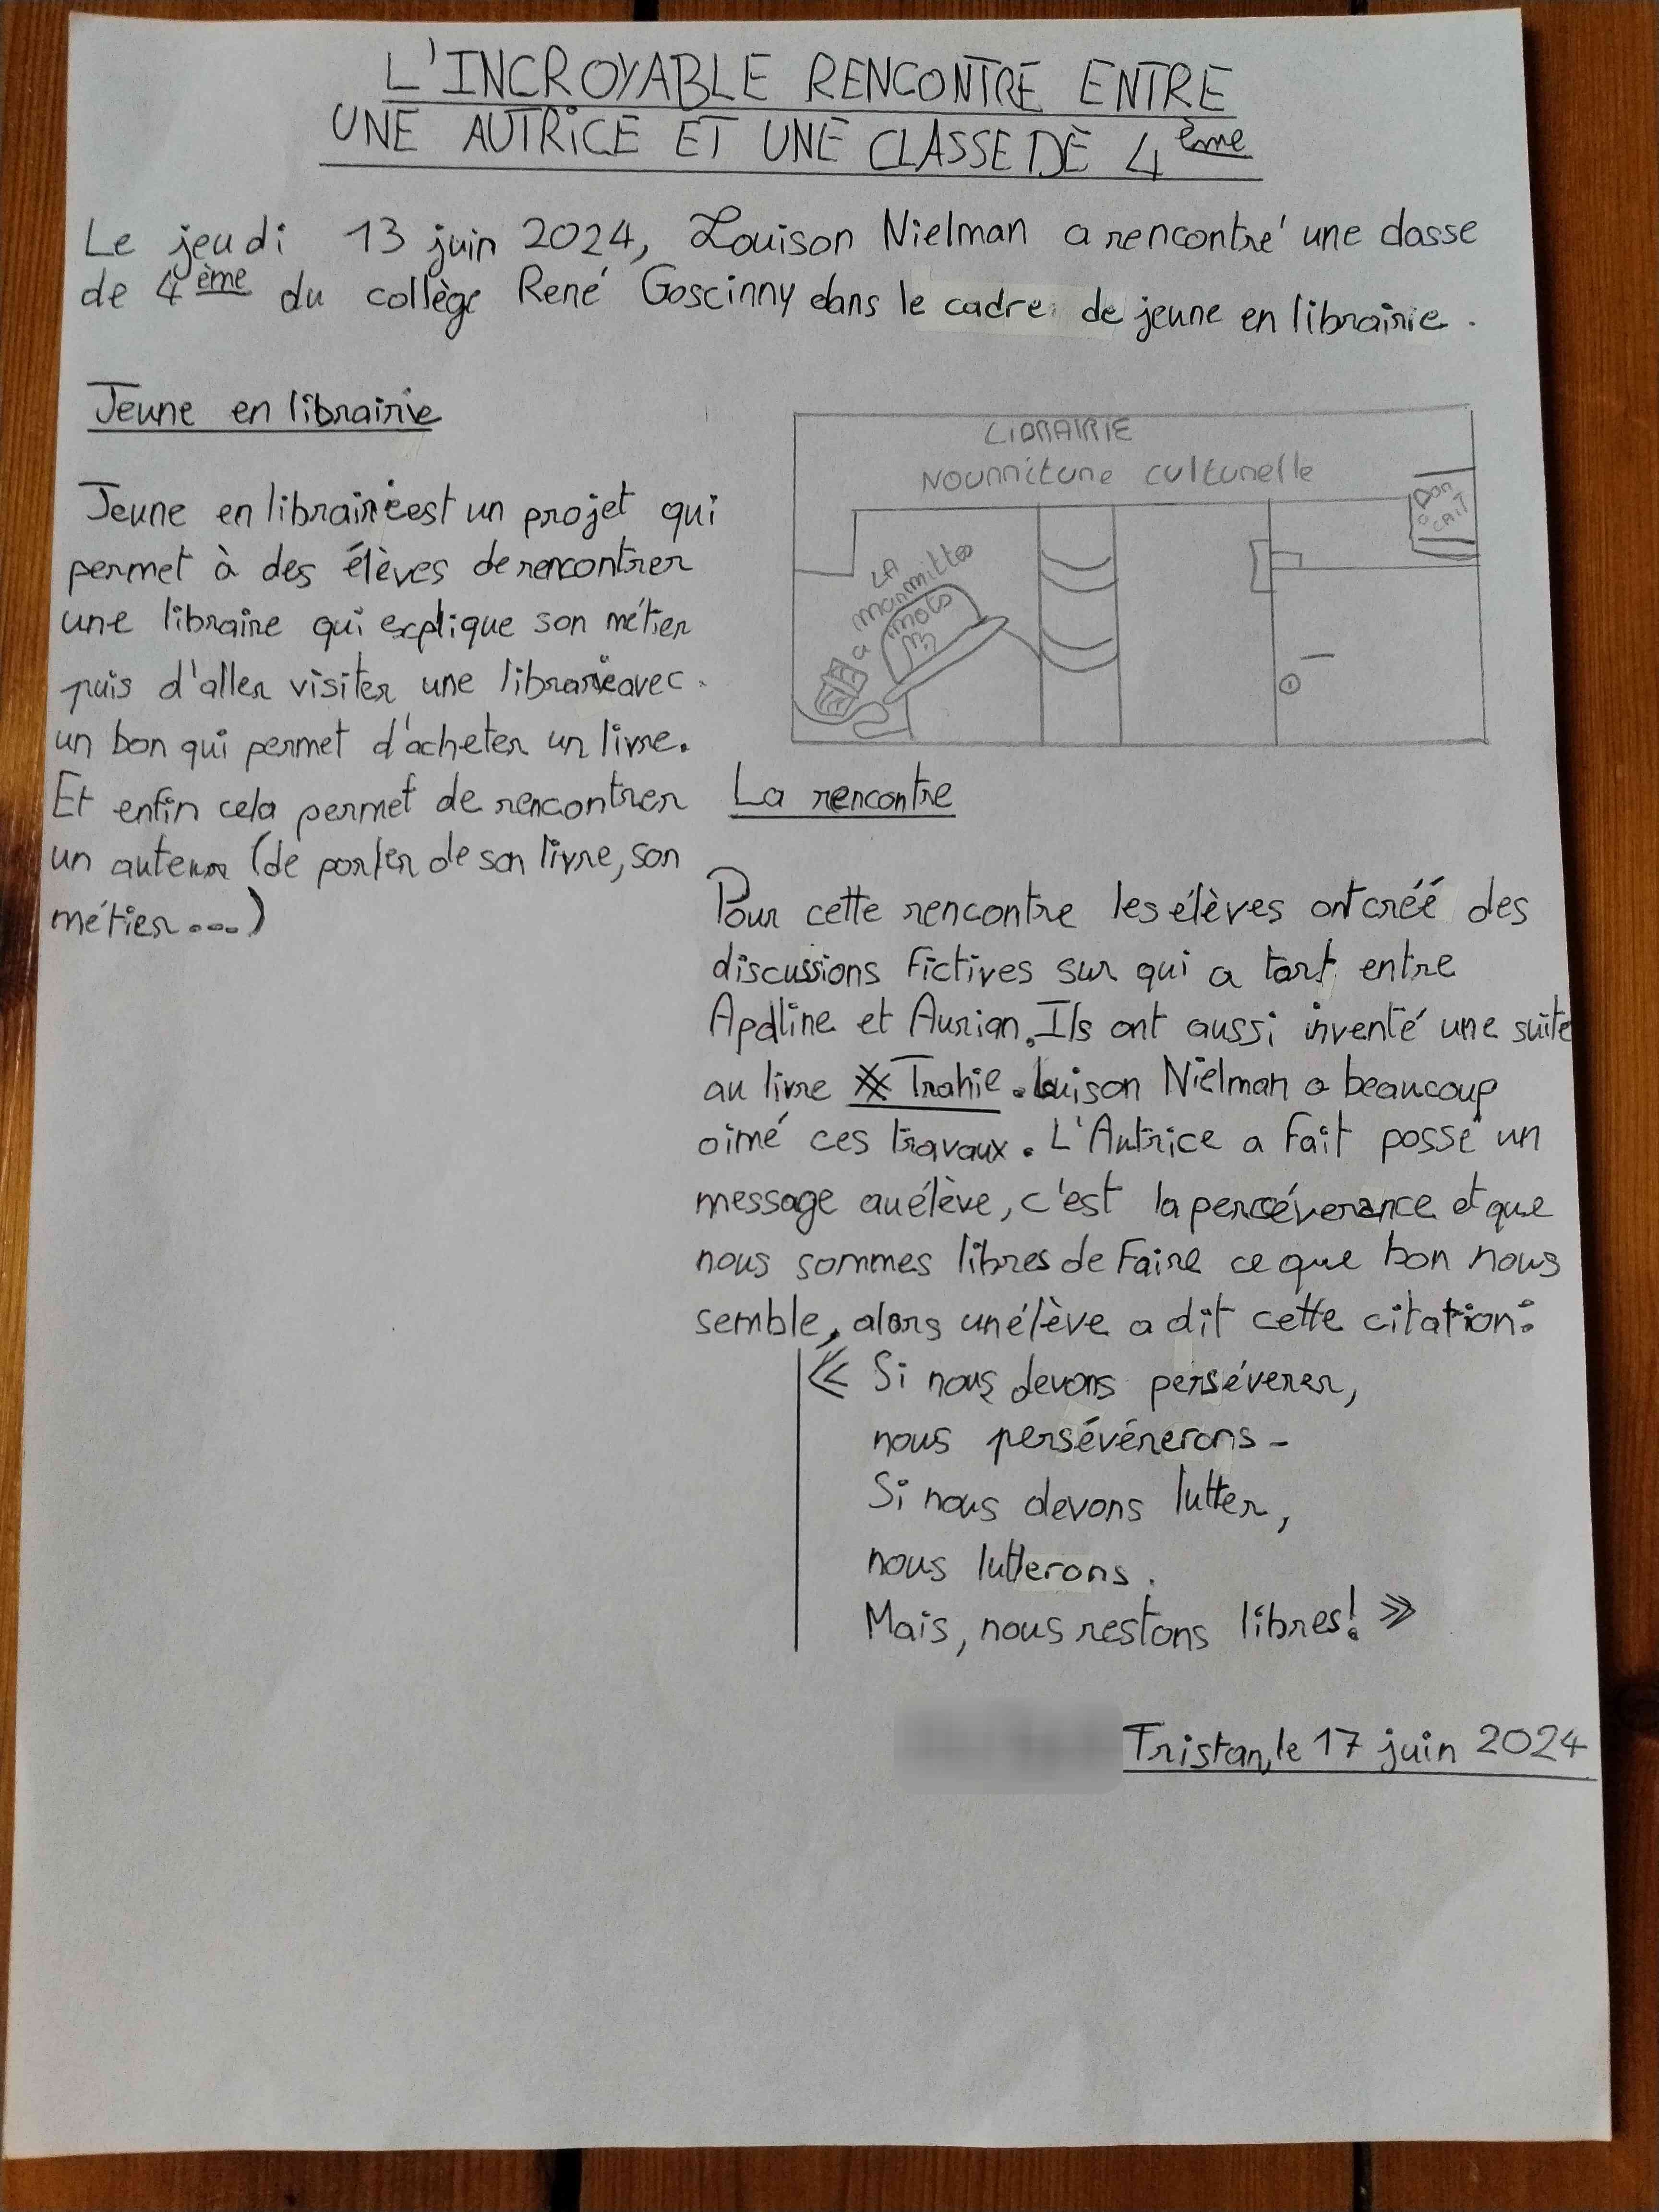 L'INCROYABLE RENCONTRE ENTRE
UNE AUTRICE ET UNE CLASSE DE 4ème
Le jeudi 13 juin 2024, Louison Nielman a rencontré une classe
de 4ème du collège René Goscinny dans le cadre de jeune en librairie.
Jeune en librairie
Jeune en librairie est un projet qui
permet à des élèves de rencontrer
une libraire qui explique son métier
puis d'aller visiter une librarie avec
un bon qui permet d'acheter un livre.
Et enfin cela permet de rencontrer
un auteur (de parler de son livre, son
métier...)
LIBRAIRIE
Nourriture culturelle
LA
marmitte
a mots
La rencontre
Pour cette rencontre les élèves ont créé des
discussions fictives sur qui a tort entre
Apolline et Aurian. Ils ont aussi inventé une suite
au livre Trahie. Louison Nielman a beaucoup
aimé ces travaux. L'Autrice a fait passé un
message au élève, c'est la persévérance et que
nous sommes libres de faire ce que bon nous
semble, alors un élève a dit cette citation:
« Si nous devons persévérer,
nous persévérerons -
Si nous devons lutter,
nous lutterons.
Mais, nous restons libres! »
Tristan, le 17 juin 2024